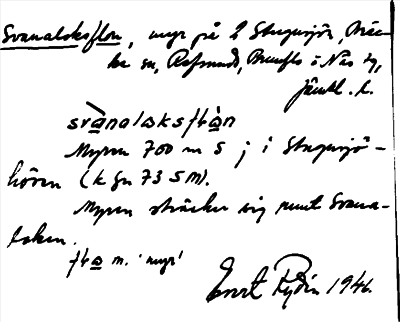 Svanaloksflon, myr på 2 Stugusjön, Bräc-
ke sn, Refsunds, Brunflo o Näs tg,
Jämtl. l.
svànalɷksflɷ̀n
Myren 700 m S j i Stugusjö-
hören (k gn 73 S M).
Myren sträcker sig runt Svana-
loken.
flɷ m. 'myr'
Evert Rydin 1946.